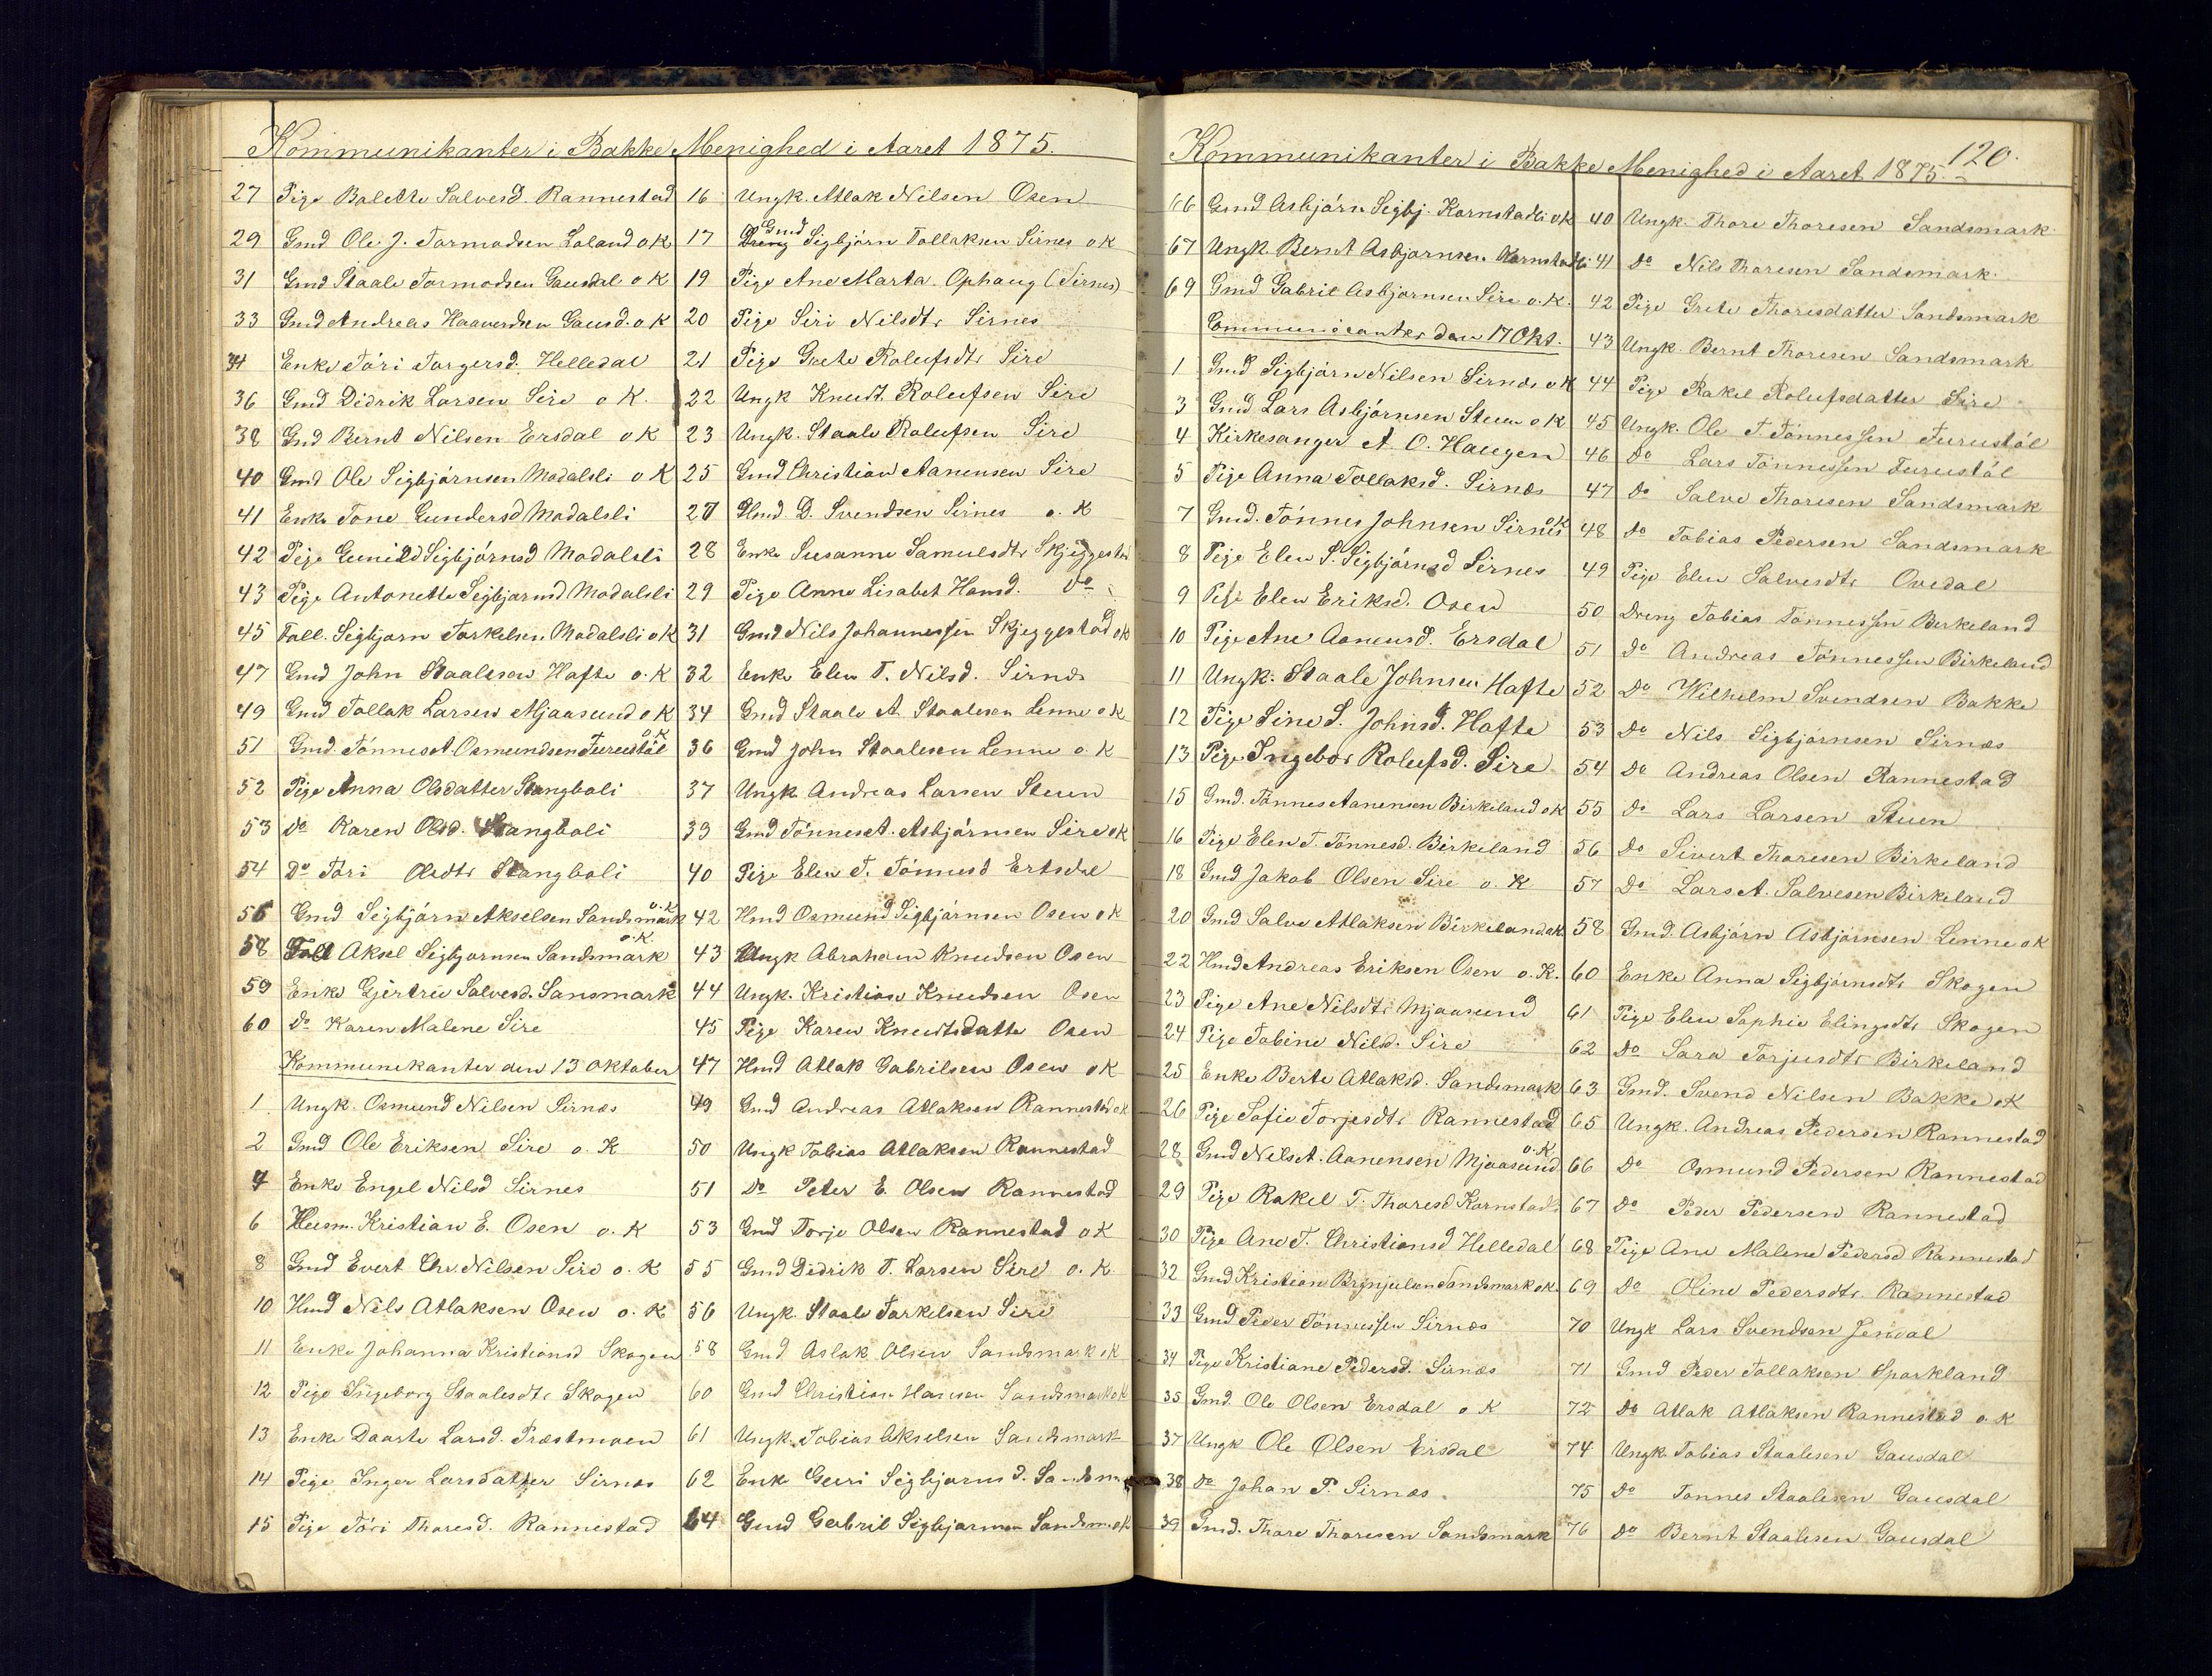 Kommunikanter i Bakke Menighed i Aaret 1875.
27 Pige Bolette Salvesd. Rannestad
29 Gmd Ole J. Tormodsen Loland o K
31 Gmd Staale Tormodsen Gausdal o K
33 Gmd Andreas Haaverdsen Gausd. o K
34 Enke Töri Torgersd. Helledal
36 Gmd Didrik Larsen Sire o K.
38 Gmd Bernt Nilsen Ersdal o K
40 Gmd Ole Sigbjörnsen Modalsli o K
41 Enke Tone Gundersd Modalsli
42 Pige Gunild Sigbjörnsd Modalsli
43 Pige Antonette Sigbjornsd Modalsli
45 Foll. Sigbjorn Torkelsen Modalsli o K
47 Gmd John Staalesen Hafte o. K
49 Gmd Tollak Larsen Mjaasund o K
51 Gmd. Tönnes A. Osmundsen Furustöl o K
52 Pige Anna Olsdatter Stangboli
53 Do Karen Olsd. Stangboli
54 Do Töri Olsdtr Stangboli
56 Gmd Sigbjörn Akselsen Sandsmark o. K
58 Foll Aksel Sigbjornsen Sandsmark o. K.
59 Enke Gjertru Salvesd. Sansmark
60 Do Karen Malene Sire
Kommunikanter den 13 Oktober
1 Ungk. Osmund Nilsen Sirnæs
2 Gmd Ole Eriksen Sire o. K
4 Enke Engel Nilsd Sirnes
6 Husm. Kristian E. Osen o. K
8 Gmd Evert Chr. Nilsen Sire o. K
10 Hmd Nils Atlaksen Osen o. K
11 Enke Johanna Kristiansd Skogen
12 Pige Ingeborg Staalesdtr Skogen
13 Enke Daarte Larsd. Præstmoen
14 Pige Inger Larsdatter Sirnæs
15 Pige Töri Thoresd. Rannestad
16 Ungk. Atlak Nilsen Osen
17 Gmd Sigbjörn Tollaksen Sirnes o K
19 Pige Ane Marta Ophaug (Sirnes)
20 Pige Siri Nilsdtr Sirnes
21 Pige Grete Rolufsdtr Sire
22 Ungk Knudt Rolufsen Sire
23 Ungk. Staale Rolufsen Sire
25 Gmd Christian Aanensen Sire
27 Hmd D. Svendsen Sirnes o. K
28 Enke Susanne Samuelsdtr Skjeggestad
29 Pige Anne Lisabet Hansd. Do
31 Gmd Nils Johannessen Skjeggestad o K
32 Enke Elen T. Nilsd. Sirnes
34 Gmd Staale A Staalesen Lenne o K
36 Gmd John Staalesen Lenne o K
37 Ungk. Andreas Larsen Stuen
39 Gmd Tönnes A. Asbjörnsen Sire o K
40 Pige Elen T. Tönnesd Ertsdal
42 Hmd Osmund Sigbjörnsen Osen o K
43 Ungk Abraham Knudsen Osen
44 Ungk. Kristian Knudsen Osen
45 Pige Karen Knudtsdatter Osen
47 Hmd Atlak Gabrilsen Osen o K
49 Gmd Andreas Atlaksen Rannestad o K
50 Ungk Tobias Atlaksen Rannestad
51 Do Peter E. Olsen Rannestad
53 Gmd Torje Olsen Rannestad o K
55 Gmd Didrik T. Larsen Sire o. K.
56 Ungk. Staale Torkelsen Sire
58 Gmd Aslak Olsen Sandsmark o K
60 Gmd Christian Hansen Sandsmark o K
61 Ungk. Tobias Akselsen Sandsmark
62 Enk Guri Sigbjorns d.
64 Gmd Gabril Sigbjornsen Sandsm. o K
120.
Kommunikanter i Bakke Menighed i Aaret 1875.
66 Gmd Asbjörn Sigbj. Kornstadli o K
67 Ungk. Bernt Asbjornsen Kornstadli
69 Gmd Gabril Asbjornsen Sire o. K.
Communicanter den 17 Okt.
1 Gmd Sigbjörn Nilsen Sirnes o K
3 Gmd Lars Asbjörnsen Stuen o K
4 Kirkesanger A. O. Haugen
5 Pige Anna Tollaksd. Sirnæs
7 Gmd. Tönnes Johnsen Sirnes o K
8 Pige Elen S. Sigbjörnsd Sirnes
9 Pige Elen Eriksd. Osen
10 Pige Ane Aanensd. Ersdal
11 Ungk. Staale Johnsen Hafte
12 Pige Sine S. Johnsd. Hafte
13 Pige Ingebor Rolufsd. Sire
15 Gmd. Tönnes Aanensen Birkeland o K
16 Pige Elen T. Tönnesd. Birkeland
18 Gmd Jakob Olsen Sire o. K
20 Gmd Salve Atlaksen Birkeland o K
22 Hmd Andreas Eriksen Osen o. K.
23 Pige Ane Nilsdtr Mjaasund
24 Pige Tobine Nilsd. Sire
25 Enke Berte Atlaksd. Sandsmark
26 Pige Sofie Torjesdtr Rannestad
28 Gmd Nils A. Aanensen Mjaasund o. K.
29 Pige Rakel T. Thoresd Kornstadli
30 Pige Ane T. Christiansd Helledal
32 Gmd Kristian Brynjulsen Sandsmark o K.
33 Gmd Peder Tönnessen Sirnæs
34 Pige Kristiane Pedersd. Sirnæs
35 Gmd. Ole Olsen Ersdal o K
37 Ungk Ole Olsen Ersdal
38 Do Johan P. Sirnæs
39 Gmd. Thore Thoresen Sandsmark
40 Ungk. Thore Thoresen Sandsmark
41 Do Nils Thoresen Sandsmark
42 Pige Grete Thoresdatter Sandsmark
43 Ungk. Bernt Thoresen Sandsmark
44 Pige Rakel Rolufsdatter Sire
45 Ungk. Ole T. Tönnessen Furustöl
46 Do Lars Tönnessen Furustöl
47 Do Salve Thoresen Sandsmark
48 Do Tobias Pedersen Sandsmark
49 Pige Elen Salvesdtr Ovedal
50 Dreng Tobias Tönnessen Berkeland
51 Do Andreas Tönnessen Birkeland
52 Do Wilhelm Svendsen Bakke
53 Do Nils Sigbjörnsen Sirnæs
54 Do Andreas Olsen Rannestad
55 Do Lars Larsen Stuen
56 Do Sivert Thoresen Birkeland
57 Do Lars A. Salvesen Birkeland
58 Gmd. Asbjörn Asbjörnsen Lenne o K
60 Enke Anna Sigbjörnsdtr Skogen
61 Pige Elen Sophie Elingsdtr Skogen
62 Do Sara Torjusdtr Birkeland
63 Gmd. Svend Nilsen Bakke o K
65 Ungk. Andreas Pedersen Rannestad
66 Do Osmund Pedersen Rannestad
67 Do Peder Pedersen Rannestad
68 Pige Ane Malene Pedersd Rannestad
69 Do Oline Pedersdtr. Rannestad
70 Ungk Lars Svendsen
71 Gmd Peder Tollaksen Sparkland
72 Do Atlak Atlaksen Rannestad o. K
74 Ungk. Tobias Staalesen Gausdal
75 Do Tonnes Staalesen Gausdal
76 Do Bernt Staalesen Gausdal